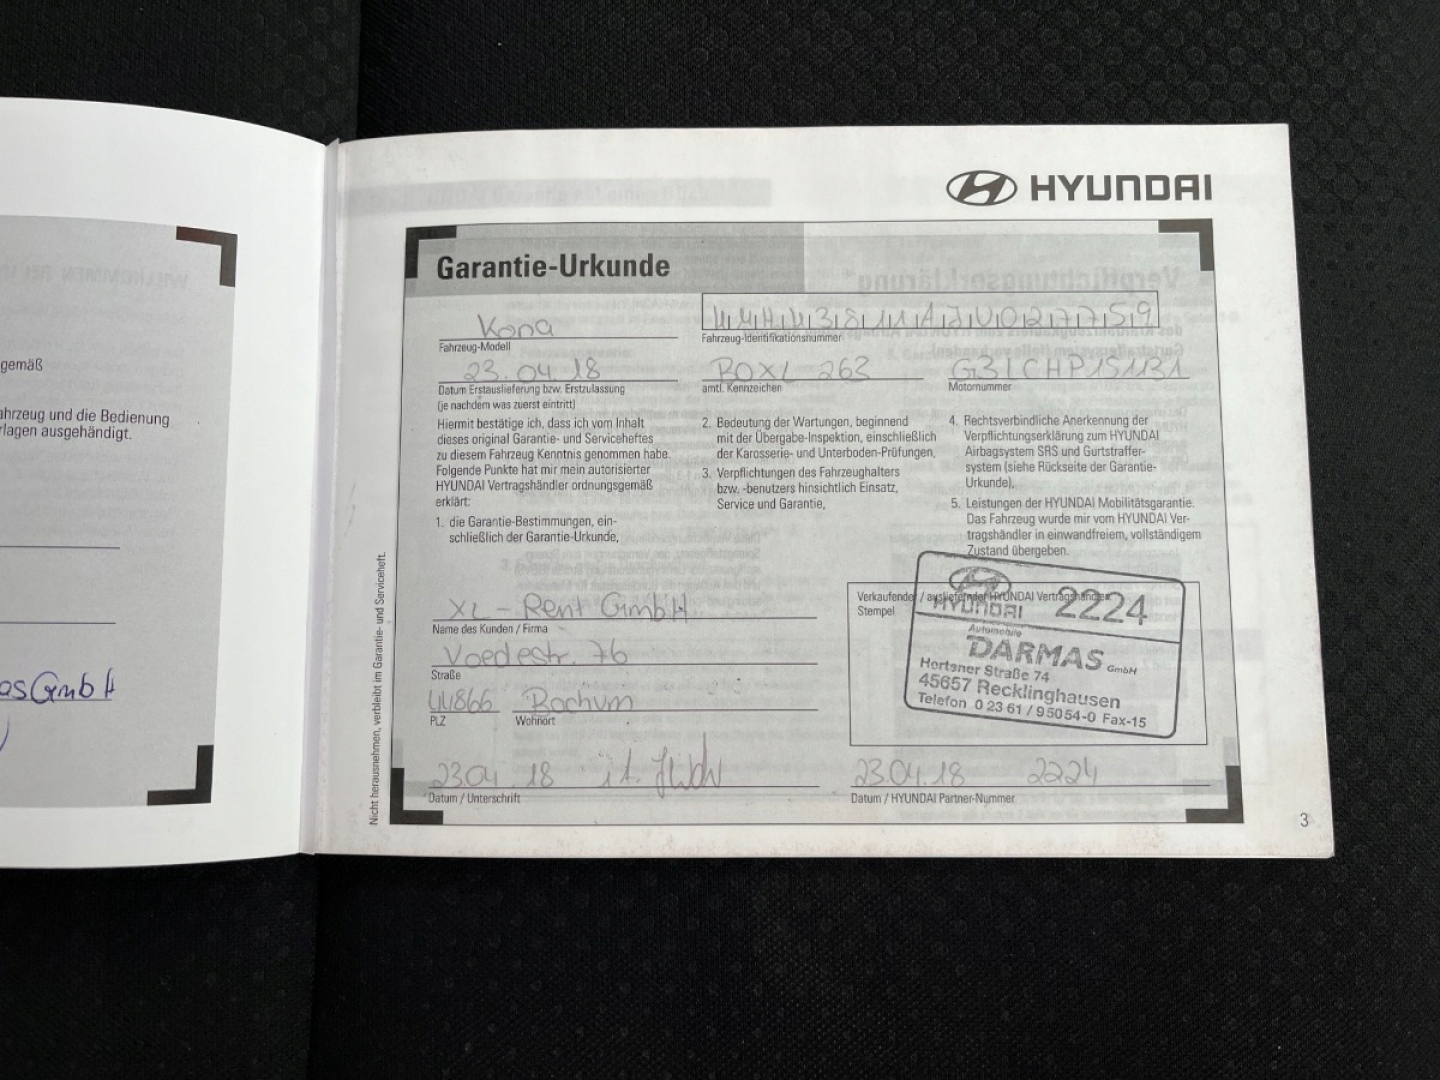 gemäß
ahrzeug und die Bedienung
rlagen ausgehändigt.
asGmbH
HYUNDAI
Garantie-Urkunde
Kona
Fahrzeug-Modell
Fahrzeug-Identifikationsnummer
23.04.18
BOXL 263
G3LCHP151131
Datum Erstauslieferung bzw. Erstzulassung
(je nachdem was zuerst eintritt)
amtl. Kennzeichen
Motornummer
Hiermit bestätige ich, dass ich vom Inhalt
dieses original Garantie- und Serviceheftes
zu diesem Fahrzeug Kenntnis genommen habe.
Folgende Punkte hat mir mein autorisierter
HYUNDAI Vertragshändler ordnungsgemäß
erklärt:
1. die Garantie-Bestimmungen, ein-
schließlich der Garantie-Urkunde,
2. Bedeutung der Wartungen, beginnend
mit der Übergabe-Inspektion, einschließlich
der Karosserie- und Unterboden-Prüfungen,
3. Verpflichtungen des Fahrzeughalters
bzw. -benutzers hinsichtlich Einsatz,
Service und Garantie,
4. Rechtsverbindliche Anerkennung der
Verpflichtungserklärung zum HYUNDAI
Airbagsystem SRS und Gurtstraffer-
system (siehe Rückseite der Garantie-
Urkunde),
5. Leistungen der HYUNDAI Mobilitätsgarantie.
Das Fahrzeug wurde mir vom HYUNDAI Ver-
tragshändler in einwandfreiem, vollständigem
Zustand übergeben.
XL - Rent GmbH
Name des Kunden / Firma
Voedestr. 76
Straße
44866 Bochum
PLZ Wohnort
23.04.18
Datum / Unterschrift
Verkaufender / ausliefernder HYUNDAI Vertragshändler
Stempel
HYUNDAI 2224
Automobile
DARMAS GmbH
Hertener Straße 74
45657 Recklinghausen
Telefon 0 23 61 / 9 50 54-0 Fax-15
23.04.18 2224
Datum / HYUNDAI Partner-Nummer
Nicht herausnehmen, verbleibt im Garantie- und Serviceheft.
3